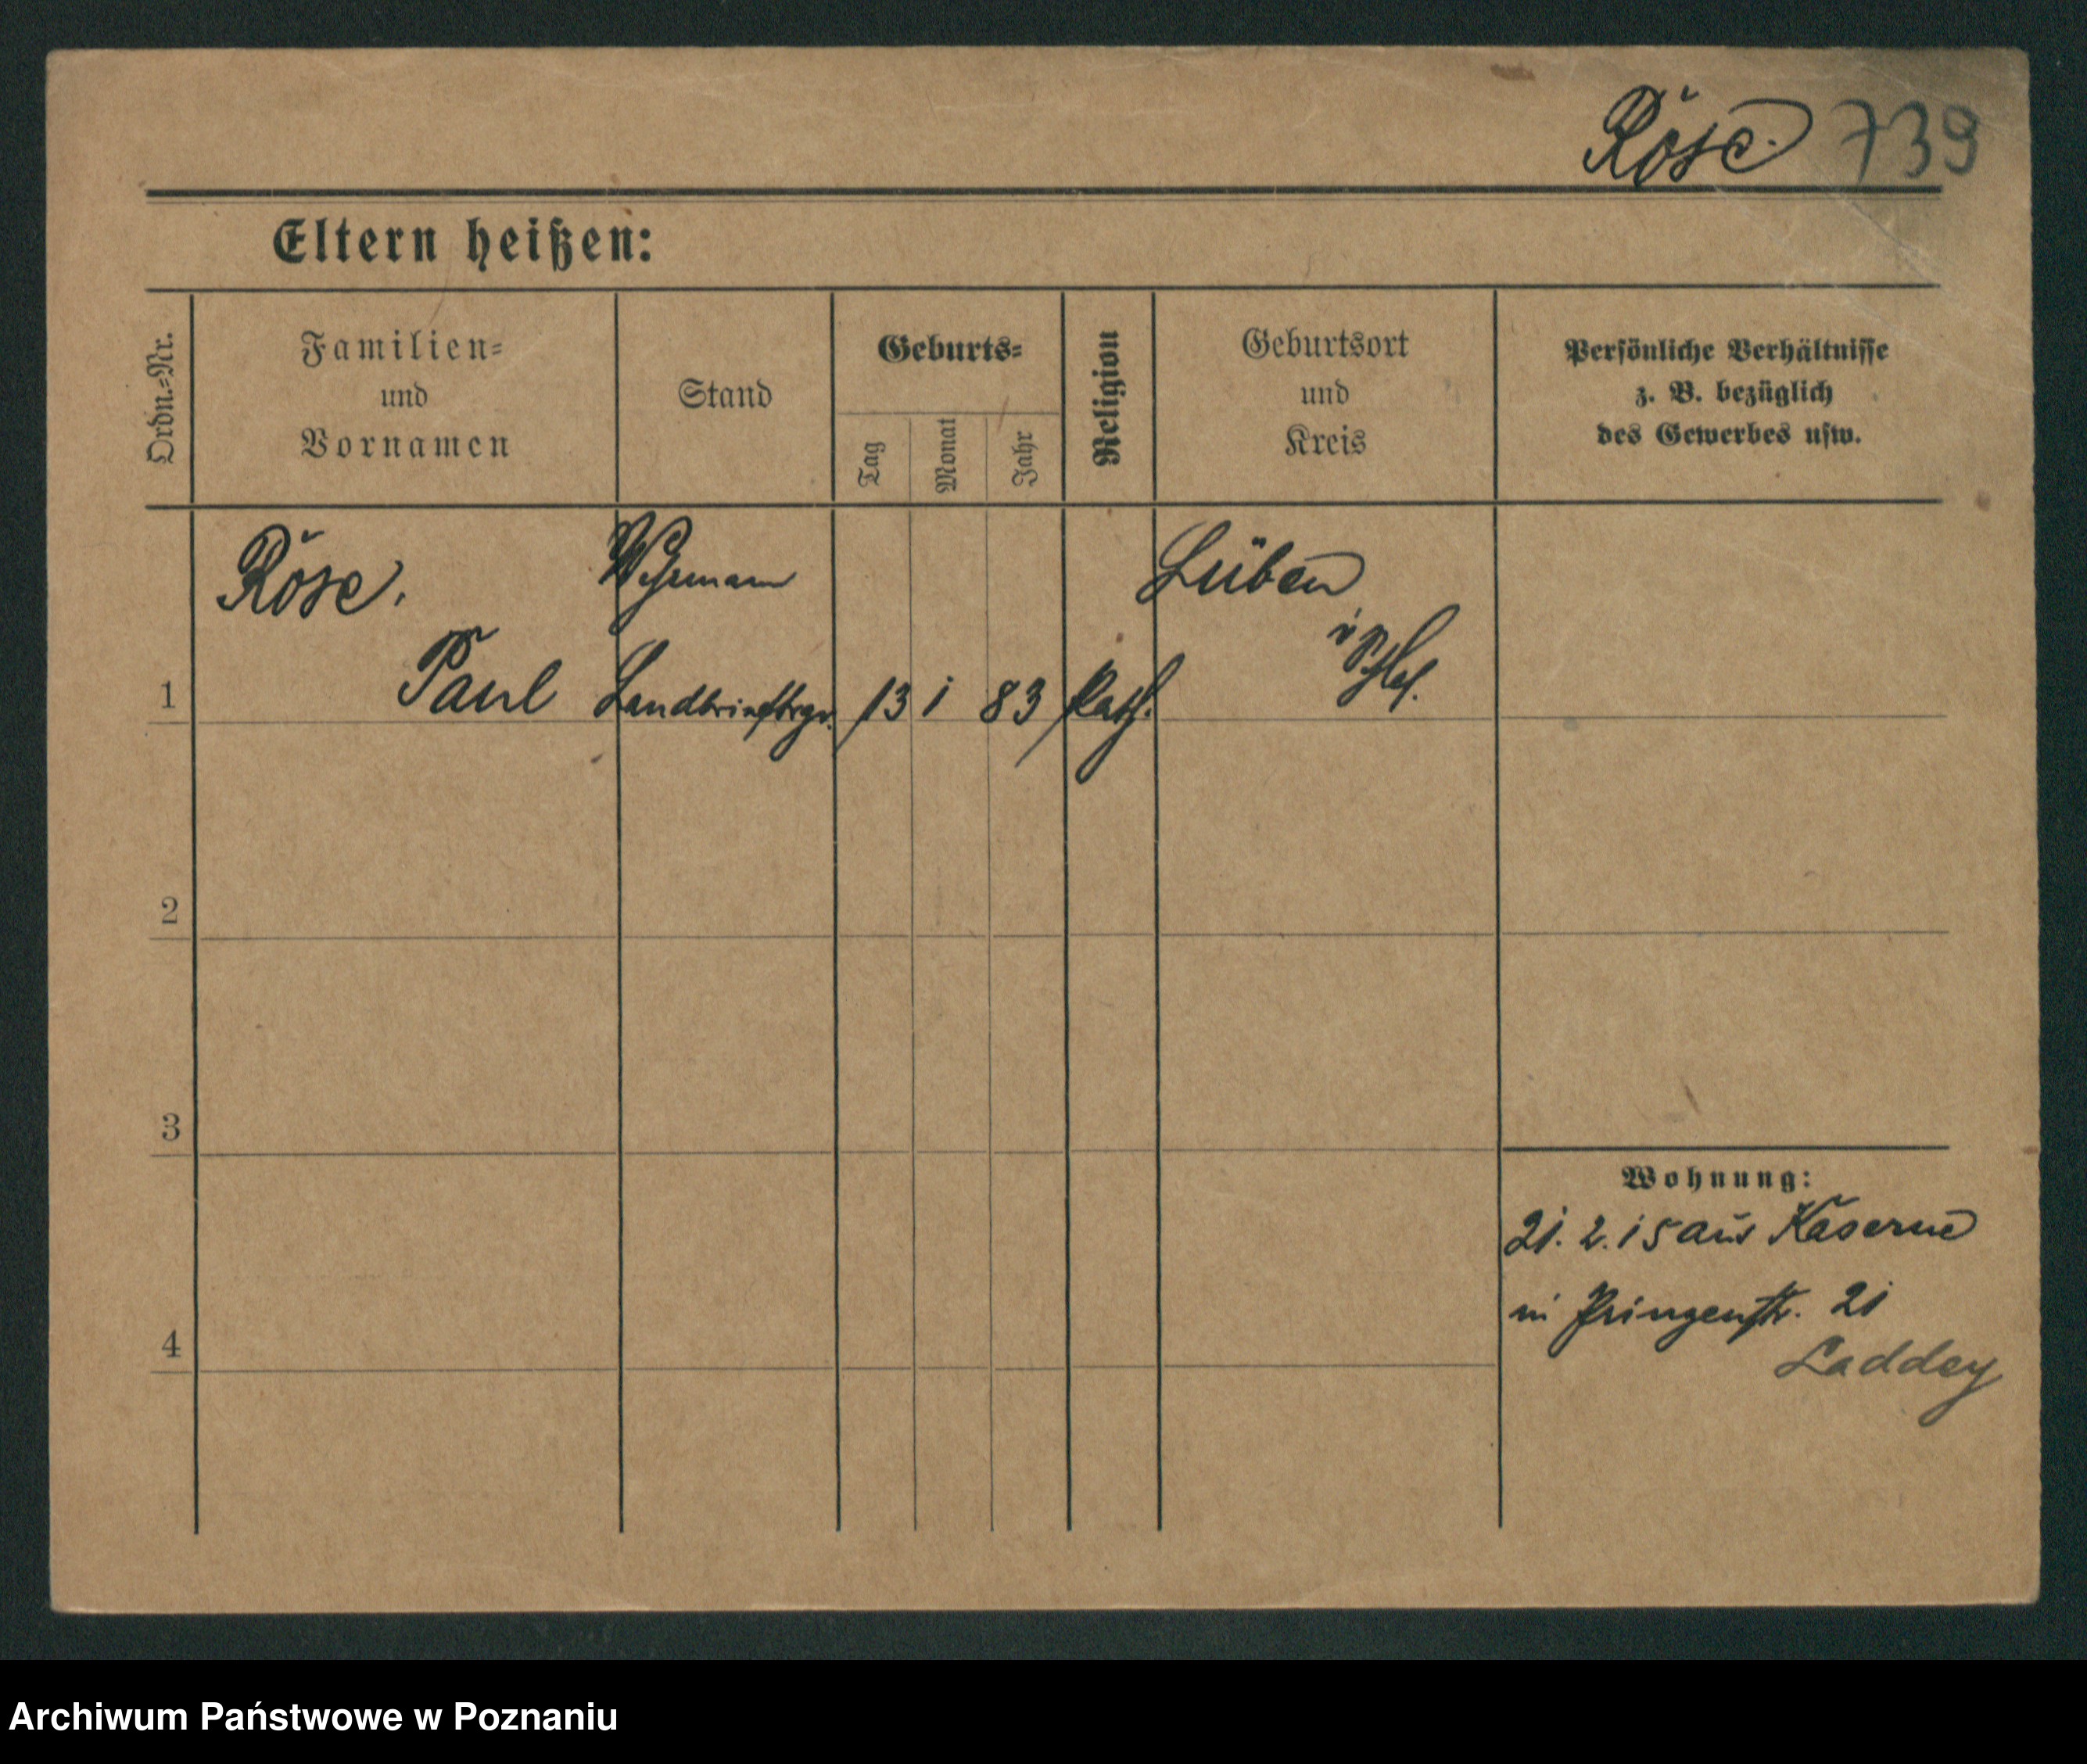 Röse. 739
Eltern heißen:
Ordn.=Nr.
Familien=
und
Vornamen
Stand
Geburts=
Tag
Monat
Jahr
Religion
Geburtsort
und
Kreis
Persönliche Verhältnisse
z. B. bezüglich
des Gewerbes usw.
Röse.
Paul
Wehrmann
13 1 83 kath.
Lüben
i Schles.
1
2
3
4
Wohnung:
21. 2. 15 aus Kaserne
in Prinzenstr. 21
Laddey
Archiwum Państwowe w Poznaniu